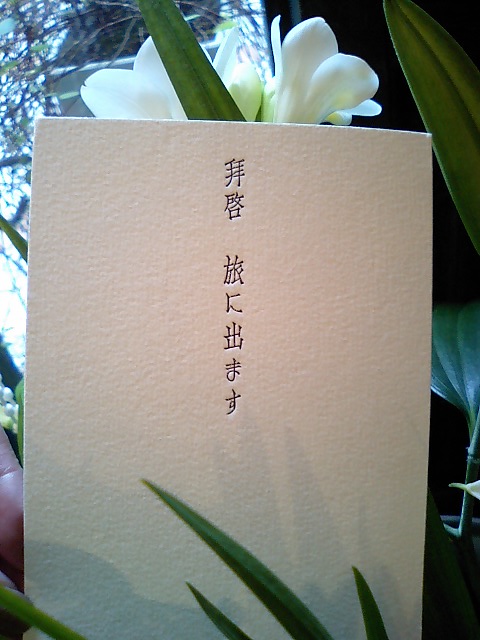 拝啓　旅に出ます